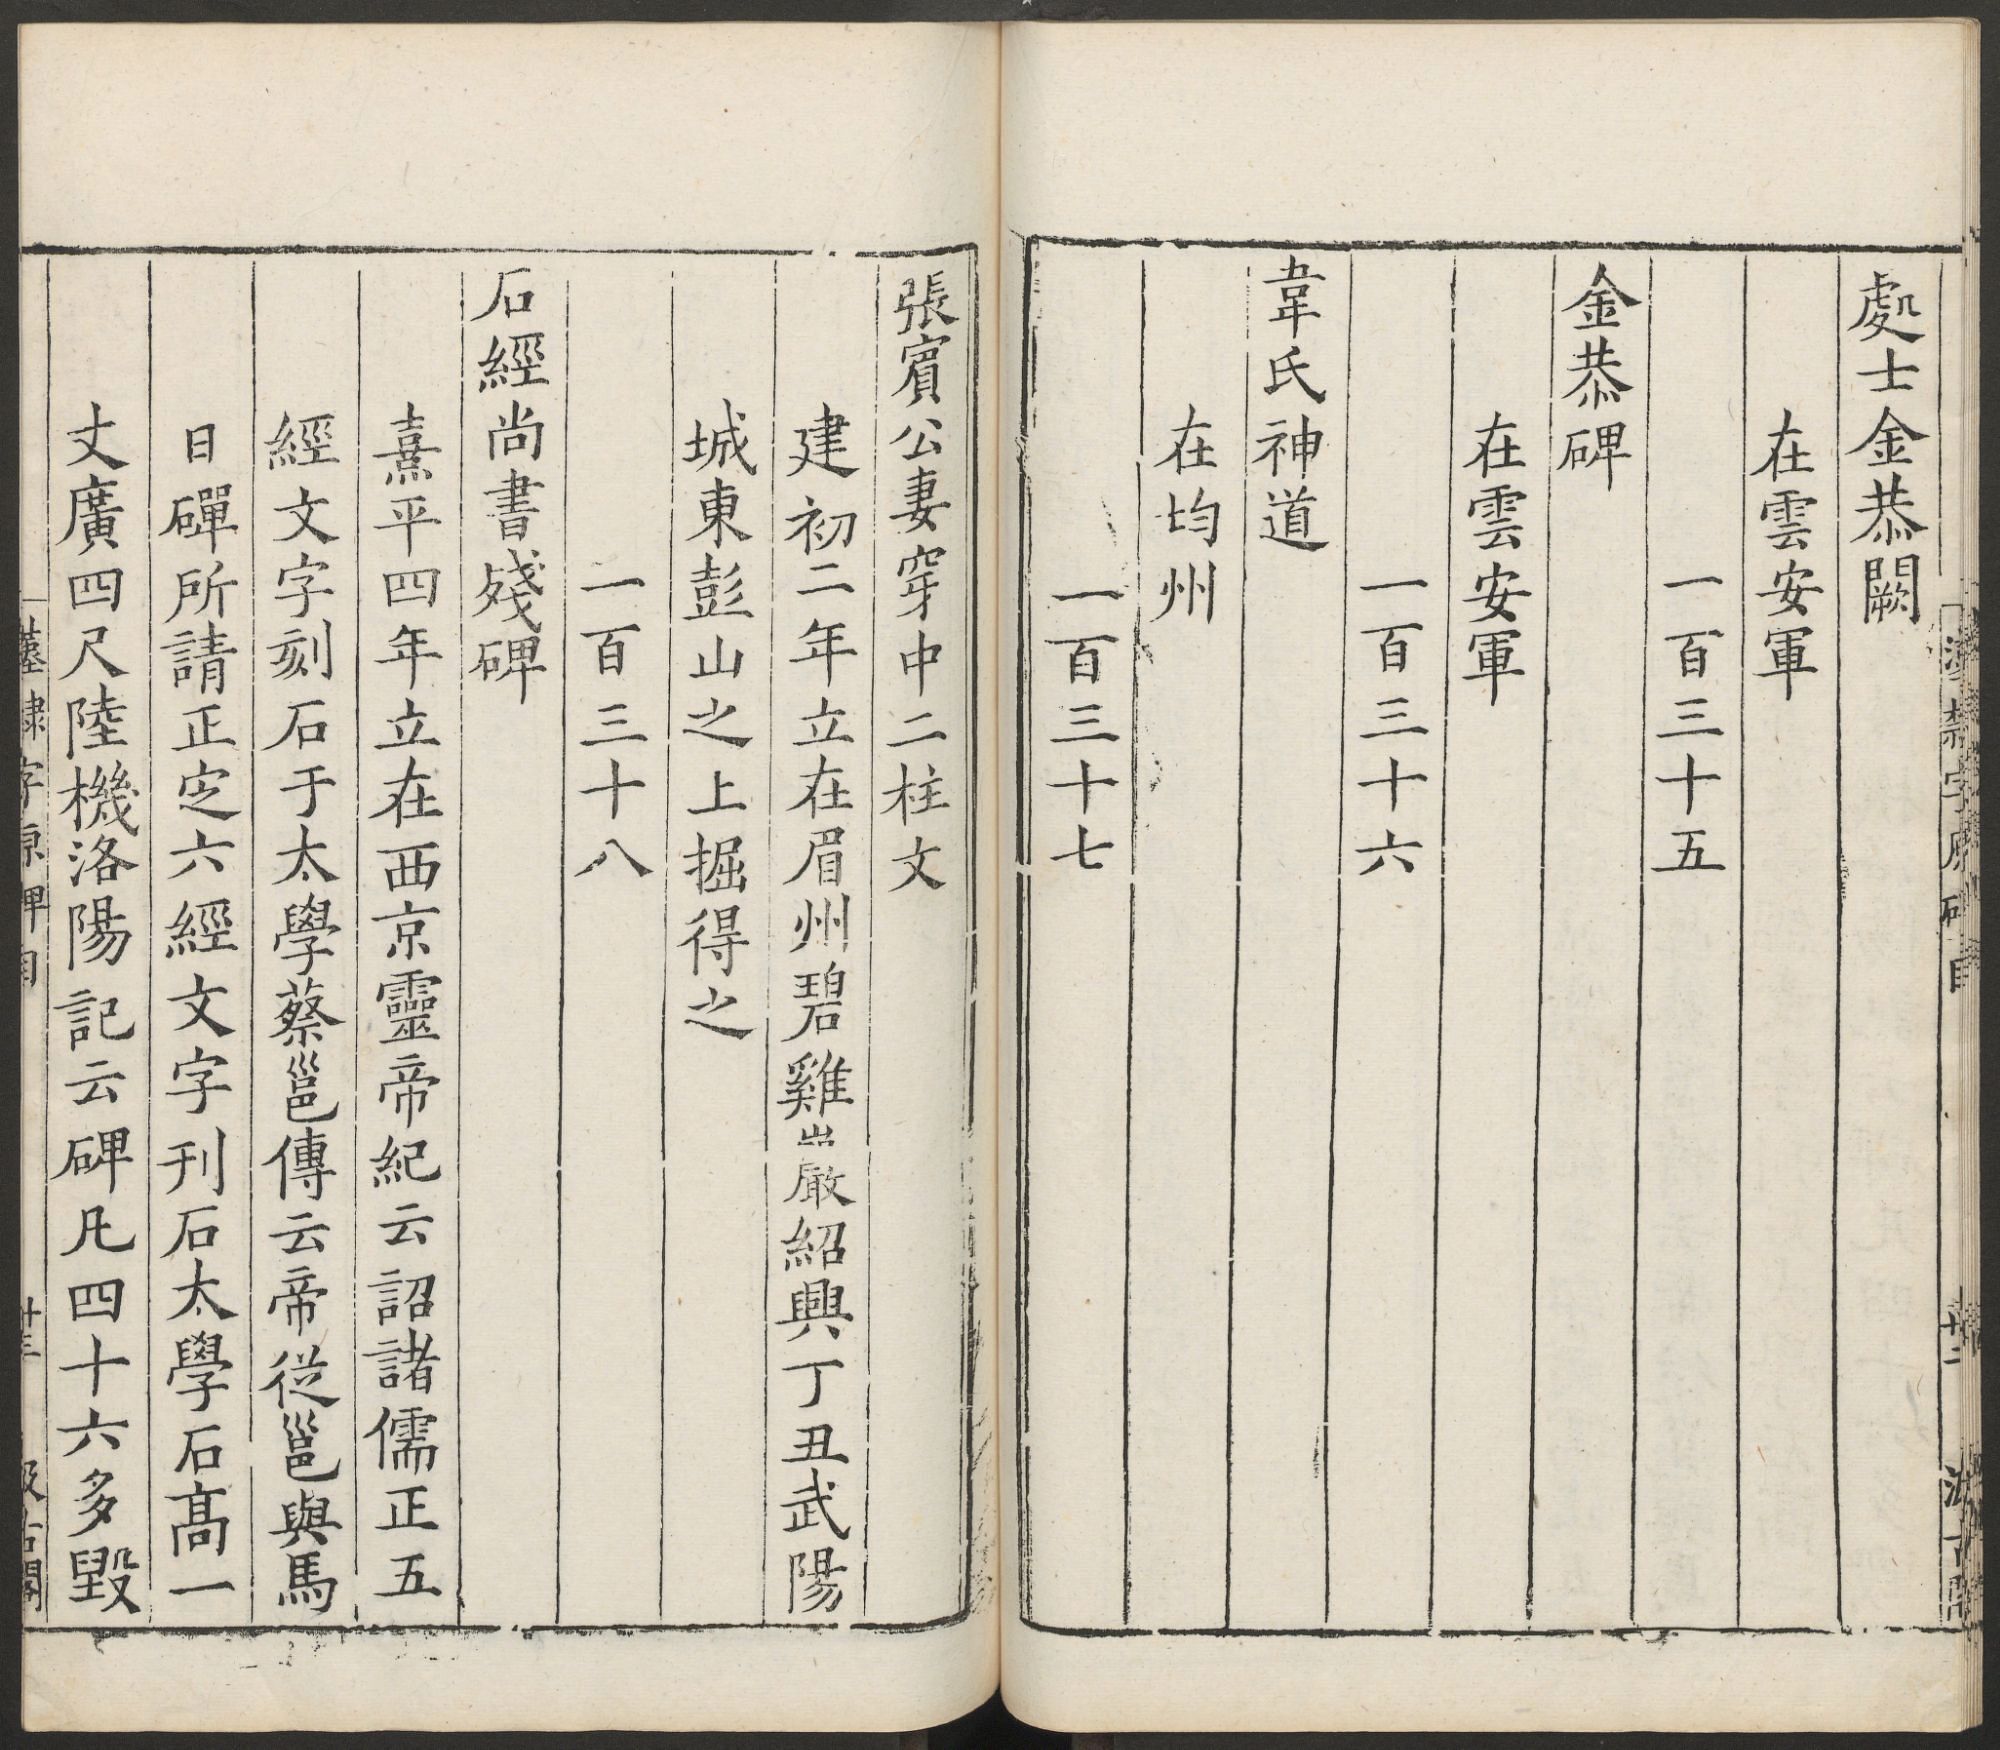 處士金恭闕
在雲安軍
一百三十五
金恭碑
在雲安軍
一百三十六
韋氏神道
在均州
一百三十七
張賓公妻穿中二柱文
建初二年立在眉州碧雞巖紹興丁丑武陽
城東彭山之上掘得之
一百三十八
石經尚書殘碑
熹平四年立在西京靈帝紀云詔諸儒正五
經文字刻石于太學蔡邕傳云帝從邕與馬
日磾所請正定六經文字刊石太學石高一
丈廣四尺陸機洛陽記云碑凡四十六多毀
隸字原碑目